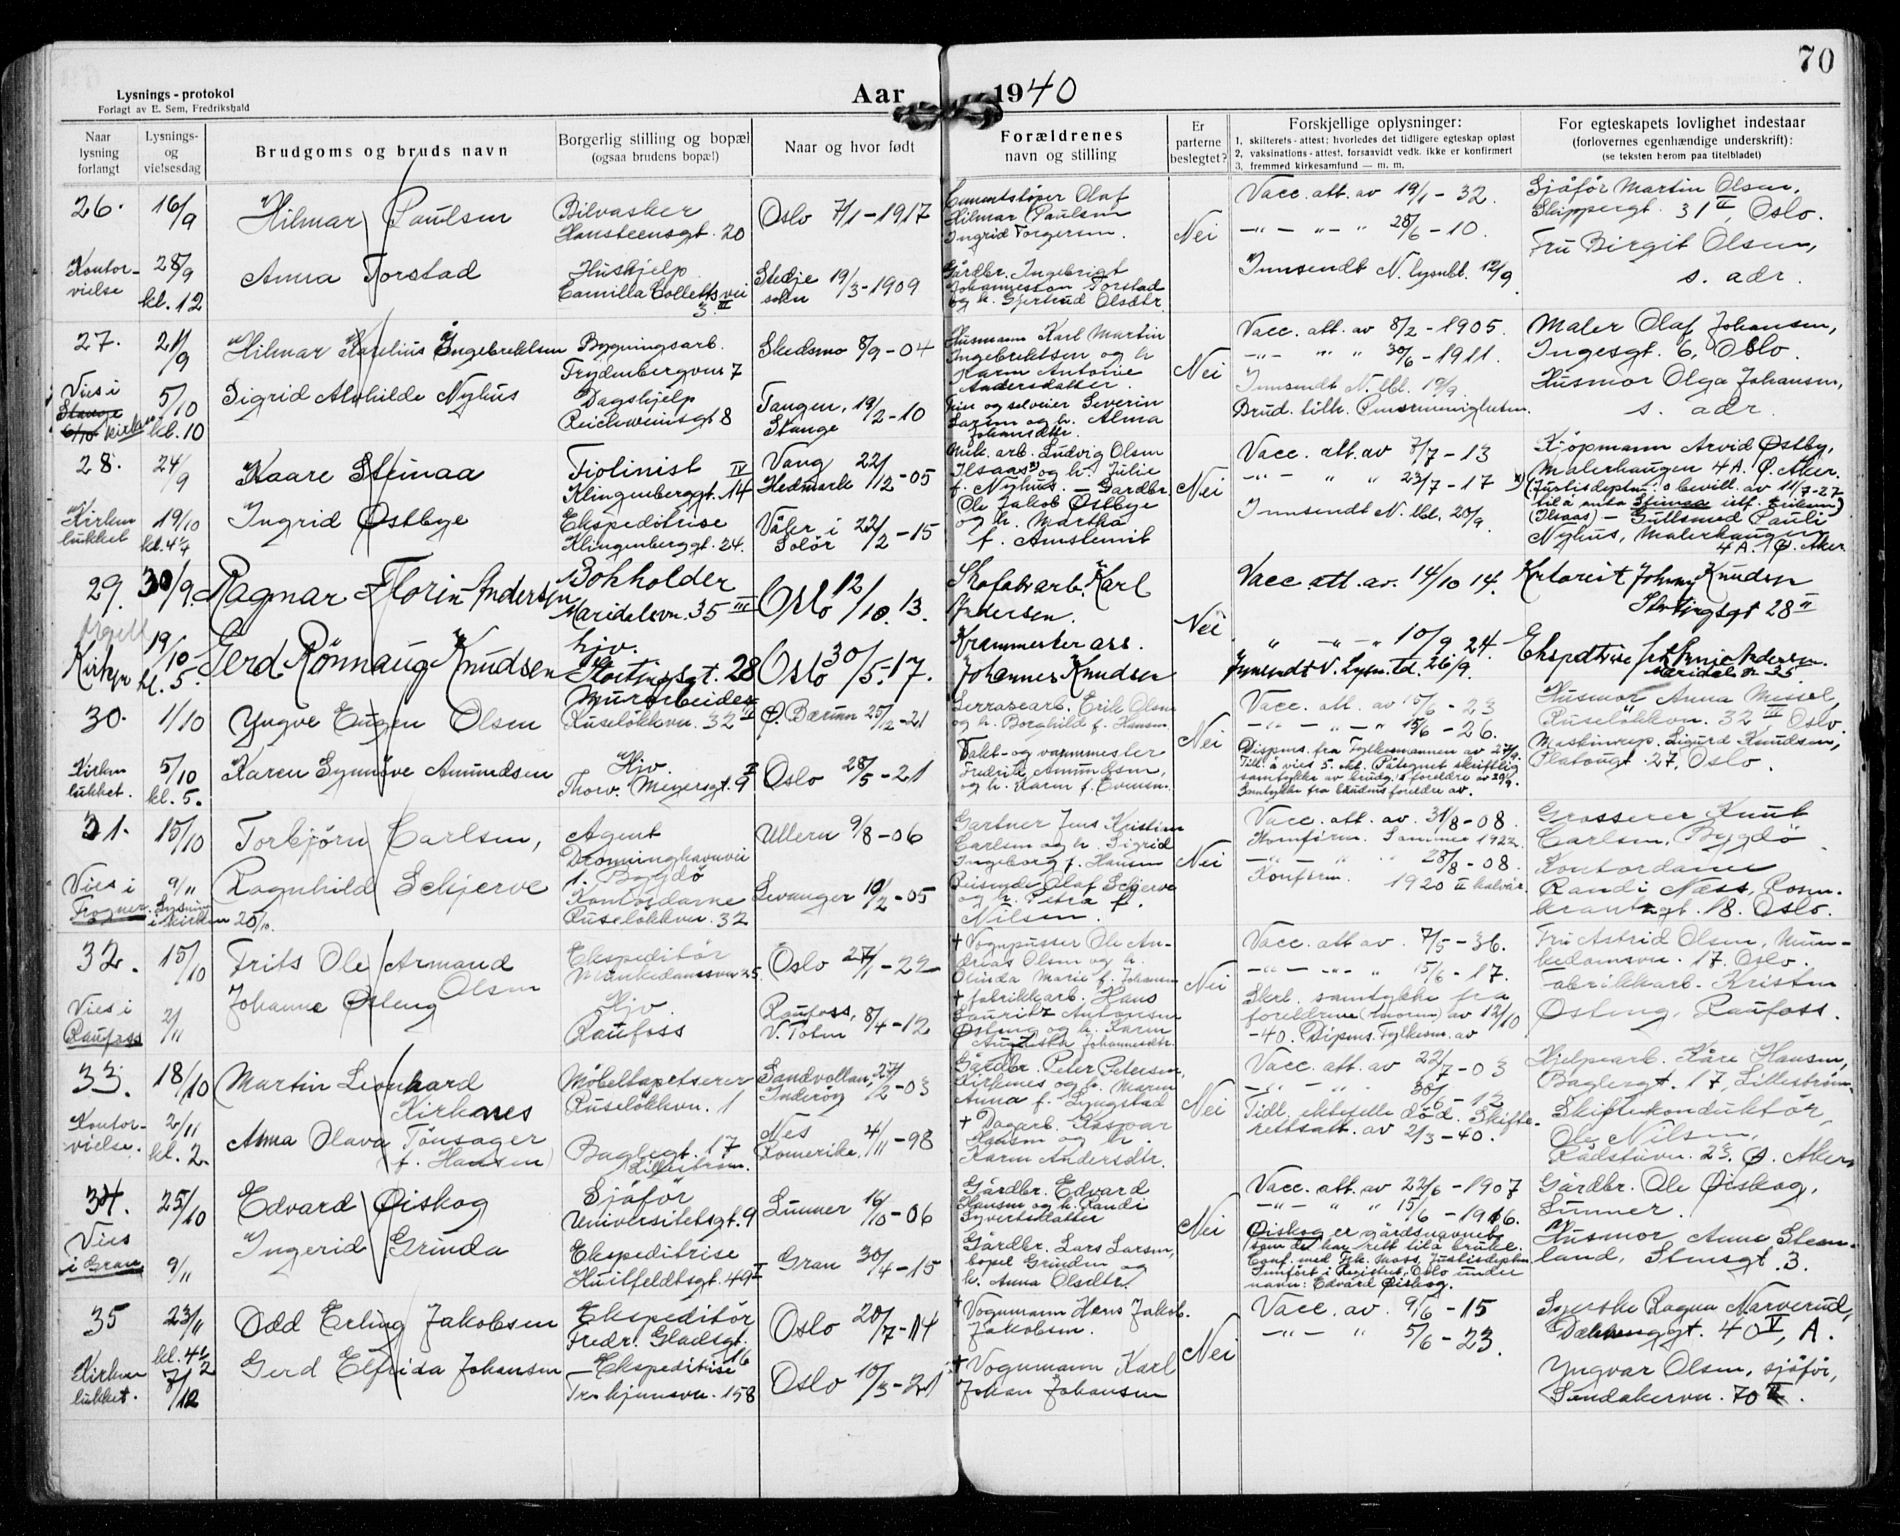 70
Lysnings - protokol
Forlagt av E. Sem, Fredrikshald
Aar 1940
Naar lysning forlangt
Lysnings- og vielsesdag
Brudgoms og bruds navn
Borgerlig stilling og bopæl
(ogsaa brudens bopæl)
Naar og hvor født
Forældrenes
navn og stilling
Er parterne beslegtet?
Forskjellige oplysninger:
1. skilterets-attest; hvorledes det tidligere egteskap opløst
2. vaksinations-attest, forsaavidt vedk. ikke er konfirmert
3. fremmed kirkesamfund — m. m.
For egteskapets lovlighet indestaar
(forlovernes egenhændige underskrift):
(se teksten herom paa titelbladet)
26. 16/9 Hilmar Paulsen
Bilvasker
Hansteensgt. 20
Oslo 7/1-1917
Cementstøper Olaf
Hilmar Paulsen
Ingrid Torgersen.
Nei
Vacc. att. av 19/1-32.
-"- -"- " 28/6-10.
Innsendt N. lysnbl. 12/9.
Sjåfør Martin Olsen,
Skippergt. 31 II, Oslo.
Fru Birgit Olsen,
s. adr.
Kontor-
vielse
28/9
kl. 12
Anna Torstad
Huskjelp
Camilla Colletts vei
3. II
19/3-1909
Gårdbr. Ingebrigt
Johannesson Torstad
og h. Gjertrud Olsdtr.
27. 21/9 Hilmar Karelius Ingebrektsen
Bygningsarb.
Frydenbergvn 7
Skedsmo 8/9-04
Husmann Karl Martin
Ingebrektsen og h.
Karen Antonie
Andersdatter.
Nei
Vacc. att. av 8/2-1905.
-"- " " 30/6-1911.
Innsendt N. lbl. 19/9.
Maler Olaf Johansen,
Ingesgt. 6, Oslo.
Husmor Olga Johansen,
s. adr.
Vies i
Stange
kirken
5/10
kl. 10
Sigrid Alvhilde Nyhus
Dagshjelp
Reichweinsgt 8
Tangen, 19/2-10
Stange
og selveier Severin
Larsen og h. Alma
Johansdtr.
28. 24/9 Kaare Steinaa
Fiolinist IV
Klingenberggt. 14
Vang 22/12-05
Hedmark
arb. Ludvig Olsen
Ilsaas og h. Julie
f. Nyhus. — Gardbr.
Ole Jakob Østbye
og h. Martha
f. Arnstenit
Nei
Vacc. att. av 7/7-13
-"- " " 23/7-17
Innsendt N. lbl. 20/9.
Kjøpmann Arvid Østby,
Malerhaugen 4 A. Ø. Aker.
(Justisdeptm.s bevill. av 11/7-27
til å anta Steinaa istf. Eriksen)
(Ilsaas) — Gullsmed Pauli
Nyhus, Malerhaugen
4 A. Ø. Aker
Kirken
lukket
19/10
kl. 4 1/4
Ingrid Østbye
Ekspeditrise
Klingenberggt. 24.
Våler i 22/2-15
Solør
29. 30/9. Ragnar Florin Andersen
Bokholder
Maridalsvn. 35 III
Oslo 12/10. 13.
Karl
Andersen.
Nei
Vacc. att. av. 14/10 14.
Johnny Knudsen
Stortingsgt 28 II
Orgel
Kirken
19/10
kl. 5.
Gerd Rönnaug Knudsen
hjv.
Stortingsgt. 28
Oslo 30/5. 17.
Kranmester ass.
Johannes Knudsen
" -"- " 10/9 24.
Innsendt N. Lysn. Td. 26/9.
Andersen.
30. 1/10 Yngve Eugen Olsen
Murarbeider
Ruseløkkvn. 32 II
Ø. Bærum 25/12-21
Terrasoarb. Erik Olsen
og h. Borghild f. Hansen
Nei
Vacc. att. av 15/6-23
-"- -"- " 15/6-26.
Dispens. fra Fylkesmannen av 27/9.
Till. å vies 5. okt. Påtegnet skriftlig
samtykke av brudg.s foreldre av 29/9.
Samtykke fra brudens foreldre av.
Husmor Anna Messel,
Ruseløkkvn. 32 III Oslo
Maskinrep. Sigurd Knudsen,
Platougt. 27, Oslo.
Kirken
lukket.
5/10
kl. 5.
Karen Synnøve Amundsen
Hjv. I
Thorv. Meyersgt. 9
Oslo 28/5-21
Vakt- og varmmester
Fredrik Amundsen,
og h. Karen f. Evensen.
31. 15/10 Torbjørn Carlsen,
Agent
Dronninghavnvei
1. Bygdö
Ullern 9/8-06
Gartner Jens Kristian
Carlsen og h. Sigrid
Ingeborg f. Hansen
Nei
Vacc. att. av. 31/8-08.
Konfirm. Sommer 1922.
-"- " " 28/8-08.
Konfirm. 1920 II halvår.
Grosserer Knut
Carlsen, Bygdö
Kontordame
Randi Næss, Rosen-
krantzgt. 18. Oslo.
Vies i
Frogner.
9/11
Lysning
i kirken 20/10.
Ragnhild Schjerve
Kontordame
Ruseløkkvn. 32
Levanger 10/2-05
Reisende Olaf Schjerve
og h. Petra f.
Nilsen.
32. 15/10 Frits Ole Armand
Olsen
Ekspeditør
Munkedamsvn 25.
Oslo 27/1-22
† Vognpusser Ole An-
dreas Olsen og h.
Olinda Marie f. Johansen
Nei
Vacc. att av. 7/5-36.
-"- -"- " 15/6-17.
Skrl. samtykke fra
foreldrene (moren) av 12/10
-40. Dispens. Fylkesm. av
Fru Astrid Olsen, Mun-
kedamsvn. 17. Oslo.
Fabrikkarb. Kristen
Østeng, Raufoss.
Vies i
Raufoss
2/11
Johanne Østeng
Hjv.
Raufoss
Raufoss, 8/4-12
V. Toten
† fabrikkarb. Hans
Lauritz Antonsen
Østeng og h. Karen
Augusta Johannesdtr.
33. 18/10 Martin Leonhard
Kirknes
Möbeltapetserer
Ruseløkkvn. 1
Sandvollan, 27/2-03
Inderöy
Gårdbr. Peter Petersen
Kirknes og h. Maren
Anna f. Lyngstad
Nei
Vacc. att. av 22/7-03
-"- " " 30/6-12
Tidl. ektefelle död. Skifte-
rettsatt. av 2/3-40.
Hjelpearb. Kåre Hansen,
Baglergt. 17, Lilleström
Skiftekonduktør,
Ole Nilsen,
Rådstuvn. 23. Ø. Aker
Kontor-
vielse.
2/11
kl. 2
Anna Olava Tönsager
(f. Hansen)
Baglergt. 17
Lillestrøm.
Nes 4/11-98
Romerike,
† Dagarb. Kaspar
Hansen og h.
Karen Andersdtr.
34. 25/10 Edvard Øiskog
Sjåför
Universitetsgt. 9
Lunner 16/10-06
Gårdbr. Edvard
Hansen og h. Randi
Syvertsdatter
Nei
Vacc. att. av 22/6-1907
-"- " " 15/6-1916.
Øiskog er gårdsnavnet
som det har rett til å bruke.
Conf. med frk. Moss Justisdeptm.
Innført i Registret, Oslo under
navn: Edvard Øiskog.
Gårdbr. Ole Øiskog,
Lunner.
Husmor Anna Steen-
land, Stensgt. 3.
Vies
i Gran
9/11
Ingerid Grinda
Ekspeditrise
Huitfeldtsgt. 49 I
Gran 30/4-15
Gårdbr. Lars Larsen,
bopel Grinden og
h. Anna Olsdtr.
35 23/11 Odd Erling Jakobsen
Ekspeditør
Fredr. Gladsgt.
16
Oslo 20/7-14
† Vognmann Hans Jakob
Jakobsen.
Nei
Vacc. av. 9/6-15
-"- " 5/6-23.
Ragna Narverud,
40 V, A.
Yngvar Olsen, sjåför,
Sandakervn. 70 II.
Kirken
lukket.
kl. 4 1/2
7/12
Gerd Elfrida Johansen
— Ekspeditrise
Tr.hjemsvn. 158
Oslo 10/3-21
† Vognmann Karl
Johan Johansen